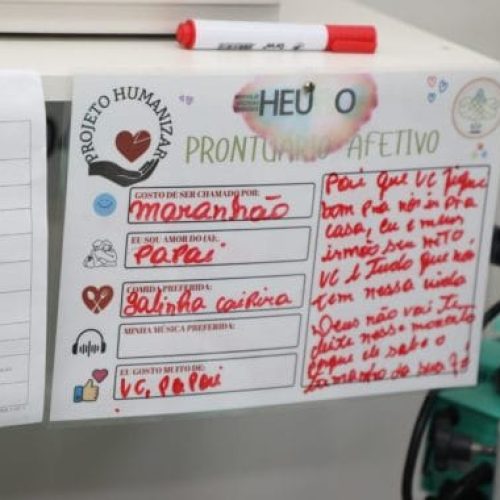 PROJETO HUMANIZAR
HEU O
PRONTUÁRIO AFETIVO
GOSTO DE SER CHAMADO POR:
maranhão
EU SOU AMOR DO (A):
PAPAI
COMIDA PREFERIDA:
galinha caipira
MINHA MÚSICA PREFERIDA:
EU GOSTO MUITO DE:
VC, PAPAI
Pai que VC fique
bom pra nós ir pra
casa, eu e meus
irmão seu mito
VC é Tudo que nós
tem nessa vida
Deus não vai te
deixe nesse momento
porque ele sabe o
tamanho da sua fé